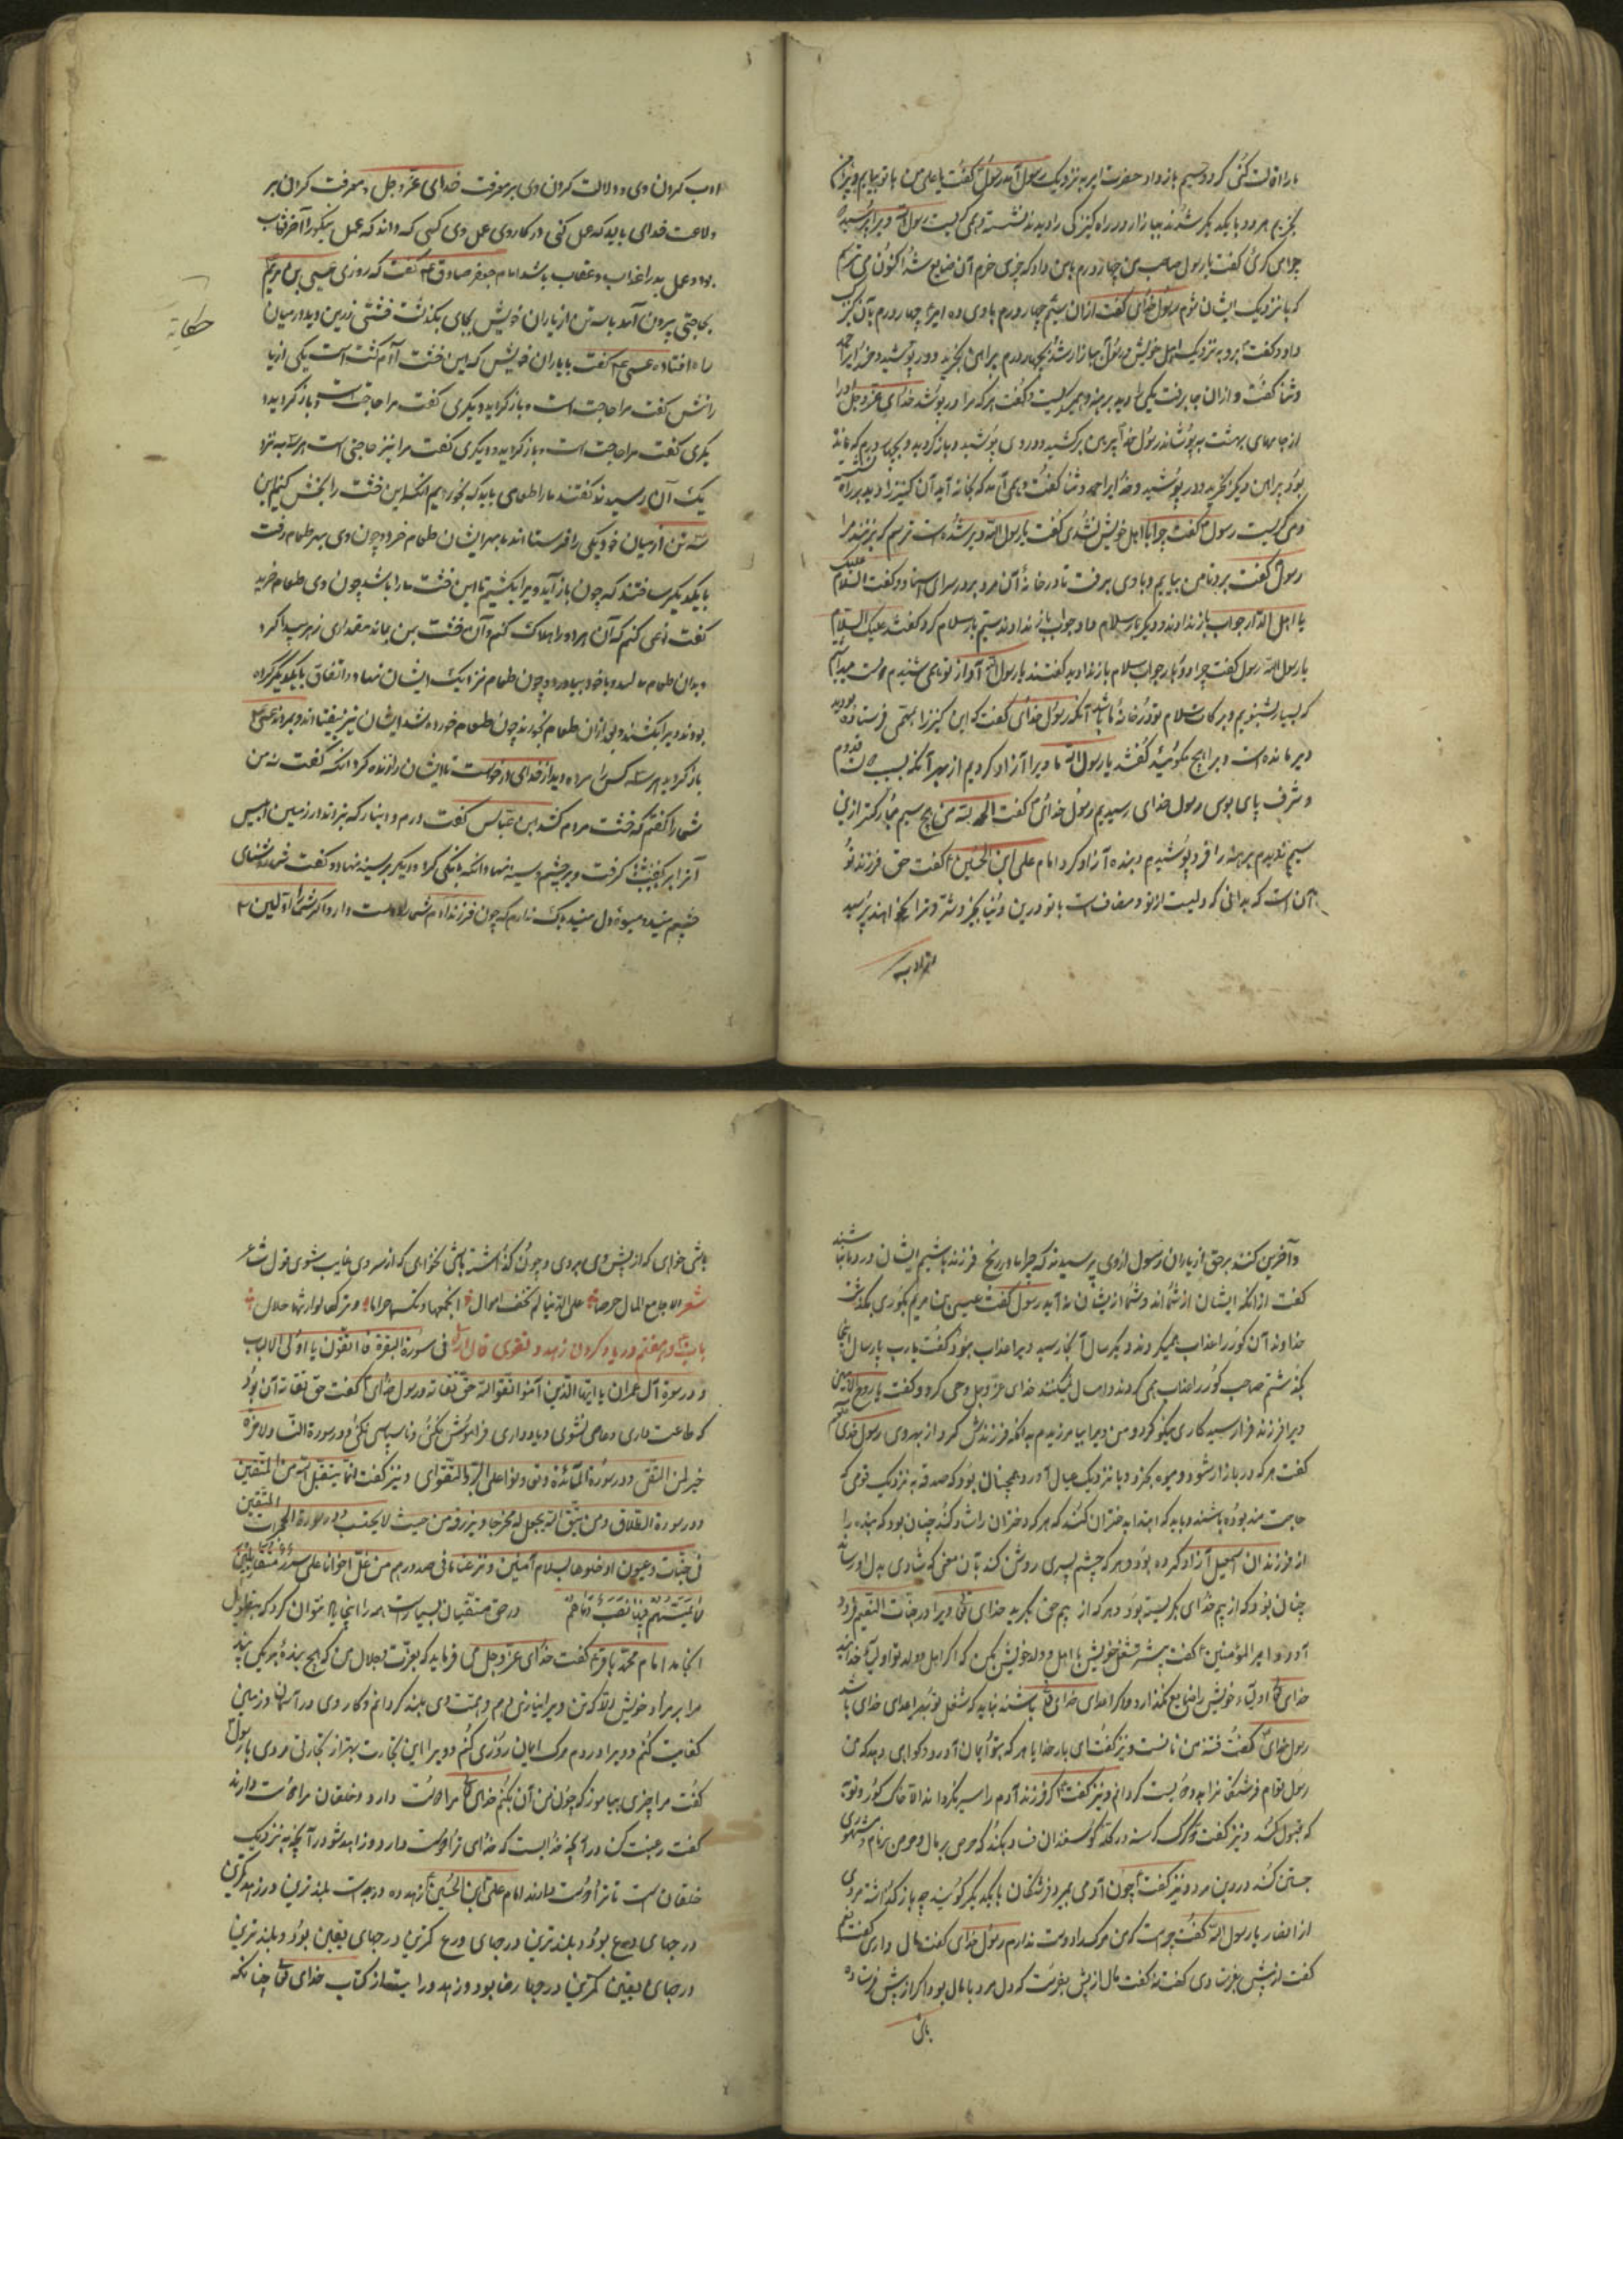 ما را اقالت کنی کرد و سیم باز داد حضرت امیر به نزدیک رسول آمد رسول گفت یا علی من با تو بیایم و پیراهن
بخریم هر دو با یکدیگر شدند ببازار در راه کنیزکی را دیدند نشسته و می گریست رسول ویرا پرسید
چرا می گریی گفت یا رسول صاحب من چهار درم بمن داد که چیزی خرم آن ضایع شد اکنون می ترسم
که با نزدیک ایشان شوم رسول خدای گفت از آن سیم چهار درم با وی ده امیر چهار درم بآن کنیزک
داد و گفت برو به نزدیک اهل خویش و رسول ببازار شد بچهار درم پیراهنی بخرید و در پوشید و خدا را حمد
و ثنا گفت و از آن جا برفت یکی را دید برهنه و همی گریست و گفت هر که مرا در پوشد خدای عز و جل او را
از جامهای بهشت بپوشاند رسول خدا پیراهن برکشید و در وی پوشید و باز گردید و بچهار درم که مانده
بود پیراهن دیگر بخرید و در پوشید و خدا را حمد و ثنا گفت و همی آمد که بخانه آید آن کنیزک را دید بر راه نشسته
و می گریست رسول گفت چرا با اهل خویش نشدی گفت یا رسول الله دیر شده است ترسم که بزنند مرا
رسول گفت برو تا من بیایم و با وی برفت تا در خانهٔ آن مرد بر در سرای استاد و گفت السلام علیک
یا اهل الدار جواب باز ندادند و دیگر بار سلام داد جواب باز ندادند سیم بار سلام کرد گفتند علیک السلام
یا رسول الله رسول گفت چرا دو بار جواب سلام باز ندادید گفتند یا رسول الله آواز تو همی شنیدم
که بسیار بشنویم و برکات سلام تو در خانهٔ ما باشد آنکه رسول خدای گفت که این کنیزک را بمهمی فرستاده بودید
دیر مانده است ویرا هیچ مگوئید گفتند یا رسول الله ما ویرا آزاد کردیم از بهر آنکه بسبب قدوم
و شرف پای بوس رسول خدای رسیدیم رسول خدای گفت الحمد لله من هیچ سیم مبارکتر ازین
سیم ندیدم برهنه را فرو پوشیدم و بنده آزاد کرد امام علی ابن الحسین گفت حق فرزند تو
آن است که بدانی که ولیست از تو و مضاف است با تو در این دنیا بخیر و شر و ترا بخواهند پرسید
از ادب
ادب کردن وی و دلالت کردن وی بر معرفت خدای عز و جل و معرفت کردن بر
طاعت خدای باید که عمل کنی در کار وی عمل وی کسی که داند که عمل نیکو را آخر ثواب
بود و عمل بد را عذاب و عقاب باشد امام جعفر صادق ع گفت که روزی عیسی بن مریم
بحاجتی بیرون آمد با سه تن از یاران خویش بجای بگذشت خشتی زرین دید در میان
حکایة
راه افتاده عیسی ع گفت با یاران خویش که این خشت آدم کش است یکی از یا
رانش گفت مرا حاجت است و باز گردید و دیگری گفت مرا حاجت است و باز گردید و
دیگری گفت مرا حاجت است و باز گردید و دیگری گفت مرا نیز حاجتی است هر سه به نزد
یک آن رسیدند گفتند ما را طعامی باید که بخوریم آنکه این خشت را بخش کنیم این
سه تن از میان خود یکی را فرستادند بهر ایشان طعام خرد و چون وی بهر طعام رفت
با یکدیگر ساختند که چون باز آید ویرا بکشیم تا این خشت ما را باشد چون وی طعام خرید
گفت آن کنم که آن همراه را هلاک کنم و آن خشت بمن بماند مقداری زهر پیدا کرد
و بدان طعام مالید و با خود بیاورد و چون طعام نزدیک ایشان نهاد و اتفاق با یکدیگر کرده
بودند ویرا بکشتند و از آن طعام بخوردند چون طعام خورده شد ایشان نیز بیفتادند و بمردند عیسی ع
باز گردید هر سه کس را مرده دید از خدای درخواست تا ایشان را زنده کرد آنکه گفت نه من
شما را گفتم که خشت مردم کش است ابن عباس گفت درم و دینار که بزدند در زمین ابلیس
آنرا برگرفت و بر چشم و سینه نهاد آنکه بانگی کرد و دیگر بر سینه نهاد و گفت شما روشنای
چشم منید و میوهٔ دل منید باک ندارم که چون فرزند آدم شما را دوست دارد
و آخرین کنند بر حق از یاران رسول از وی پرسیدند که چرا ما در رنج فرزند باشیم ایشان در رنج ما نباشند
گفت از آنکه ایشان از شما اند و شما از ایشان نه آید رسول گفت عیسی بن مریم بگوری بگذشت
خداوند آن گور را عذاب همی کردند دیگر سال آنجا رسید ویرا عذاب نبود گفت یا رب پار سال اینجا
بگذشتم صاحب گور را عذاب همی کردند و امسال نمی کنند خدای عز و جل وحی کرد و گفت یا روح الامین
ویرا فرزند فرا رسید کاری نیکو کرد و من ویرا بیامرزیدم بدانکه فرزندش کرد از بهر وی رسول خدای
گفت هر که در بازار شود و میوه بخرد و با نزدیک عیال آورد همچنان بود که صدقه به نزدیک قومی که
حاجتمند بوده باشند و باید که ابتدا بدختران کنند که هر که دختران را شاد کند چنان بود که بنده را
از فرزندان اسمعیل آزاد کرده بود و هر که چشم پسری روشن کند بآن معنی که شادی بدل او رساند
چنان بود که از بیم خدای بگریسته بود و هر که از بیم حق بگرید خدای تعالی ویرا در جنات النعیم فرود
آورد و امیر المؤمنین گفت بیشتر شغل خویش با اهل و ولد خویش مکن که اگر اهل و ولد تو اولیاء خدایند
خدای تعالی اولیاء خویش را ضایع نگذارد و اگر اعدای خدای باشند نباید که شغل تو بهر اعدای خدای باشد
رسول خدای گفت فتنهٔ من ز است و نیز گفت ای بار خدایا هر که بتو ایمان آورد و گواهی دهد که من
رسول توام
که قبول کند و نیز گفت دو گرگ گرسنه در گله گوسفندان فساد نکند که حرص بر مال و حرص بر نام و مشهوری
جستن کند در دین مرد و نیز گفت چون آدمی بمیرد فرشتگان با یکدیگر گویند چه باز گذاشته مردی
از انصار یا رسول الله گفت چیست که من مرگ را دوست ندارم رسول خدای گفت مال داری گفت نعم
گفت از پیش بفرستادی گفت نه گفت مال از پیش بفرست که دل مرد با مال بود اگر از پیش فرستاده
باشی
باشی خواهی که از پیش وی بروی و چون گذاشته باشی نخواهی که از سر وی غایب شوی قول شاعر
شعر الا جامع المال حرصا علی الدنیا لم تخف احوال انجمعها وتکسبها حراما وترکها لوارثها حلال
باب بیست و هفتم در یاد کردن زهد و تقوی قال الله فی سورة البقرة فاتقون یا اولی الالباب
و در سورة آل عمران یا ایها الذین آمنوا اتقوا الله حق تقاته و رسول خدای گفت حق تقاته آن بود
که طاعت داری و عاصی نشوی و یاد داری فراموش نکنی و ناسپاسی نکنی و در سورة النساء والآخرة
خیر لمن اتقی و در سورة المائدة وتعاونوا علی البر والتقوی و نیز گفت انما یتقبل الله من المتقین
و در سورة الطلاق ومن یتق الله یجعل له مخرجا ویرزقه من حیث لا یحتسب و در سورة الحجر ان المتقین
فی جنات وعیون ادخلوها بسلام آمنین ونزعنا ما فی صدورهم من غل اخوانا علی سرر متقابلین
لا یمسهم فیها نصب وما هم در حق متقیان بسیار است همه را اینجا یاد نتوان کرد که بتطویل
انجامد امام محمد باقر گفت خدای عز و جل می فرماید که بعزت و جلال من که هیچ بندهٔ
مرا بر مراد خویش الا که من ویرا بی نیازی دهم و همت وی بلند گردانم و کار وی در آسمان و زمین
کفایت کنم و ویرا در دم مرگ ایمان روزی کنم و ویرا این تجارت بهتر از تجارتی مردی با رسول
گفت مرا چیزی بیاموز که چون من آن بکنم خدای تعالی مرا دوست دارد و خلقان مرا دوست دارند
گفت رغبت کن در آنچه خدایست که خدای ترا دوست دارد و زاهد شو در آنچه به نزدیک
خلقان است تا ترا دوست دارند امام علی ابن الحسین گفت زهد ده درجه است بلندترین در زهد کمترین
درجای ورع بود و بلندترین درجای ورع کمترین درجای یقین بود و بلندترین
درجای یقین کمترین درجای رضا بود و زهد در آیتست از کتاب خدای تعالی چنانکه